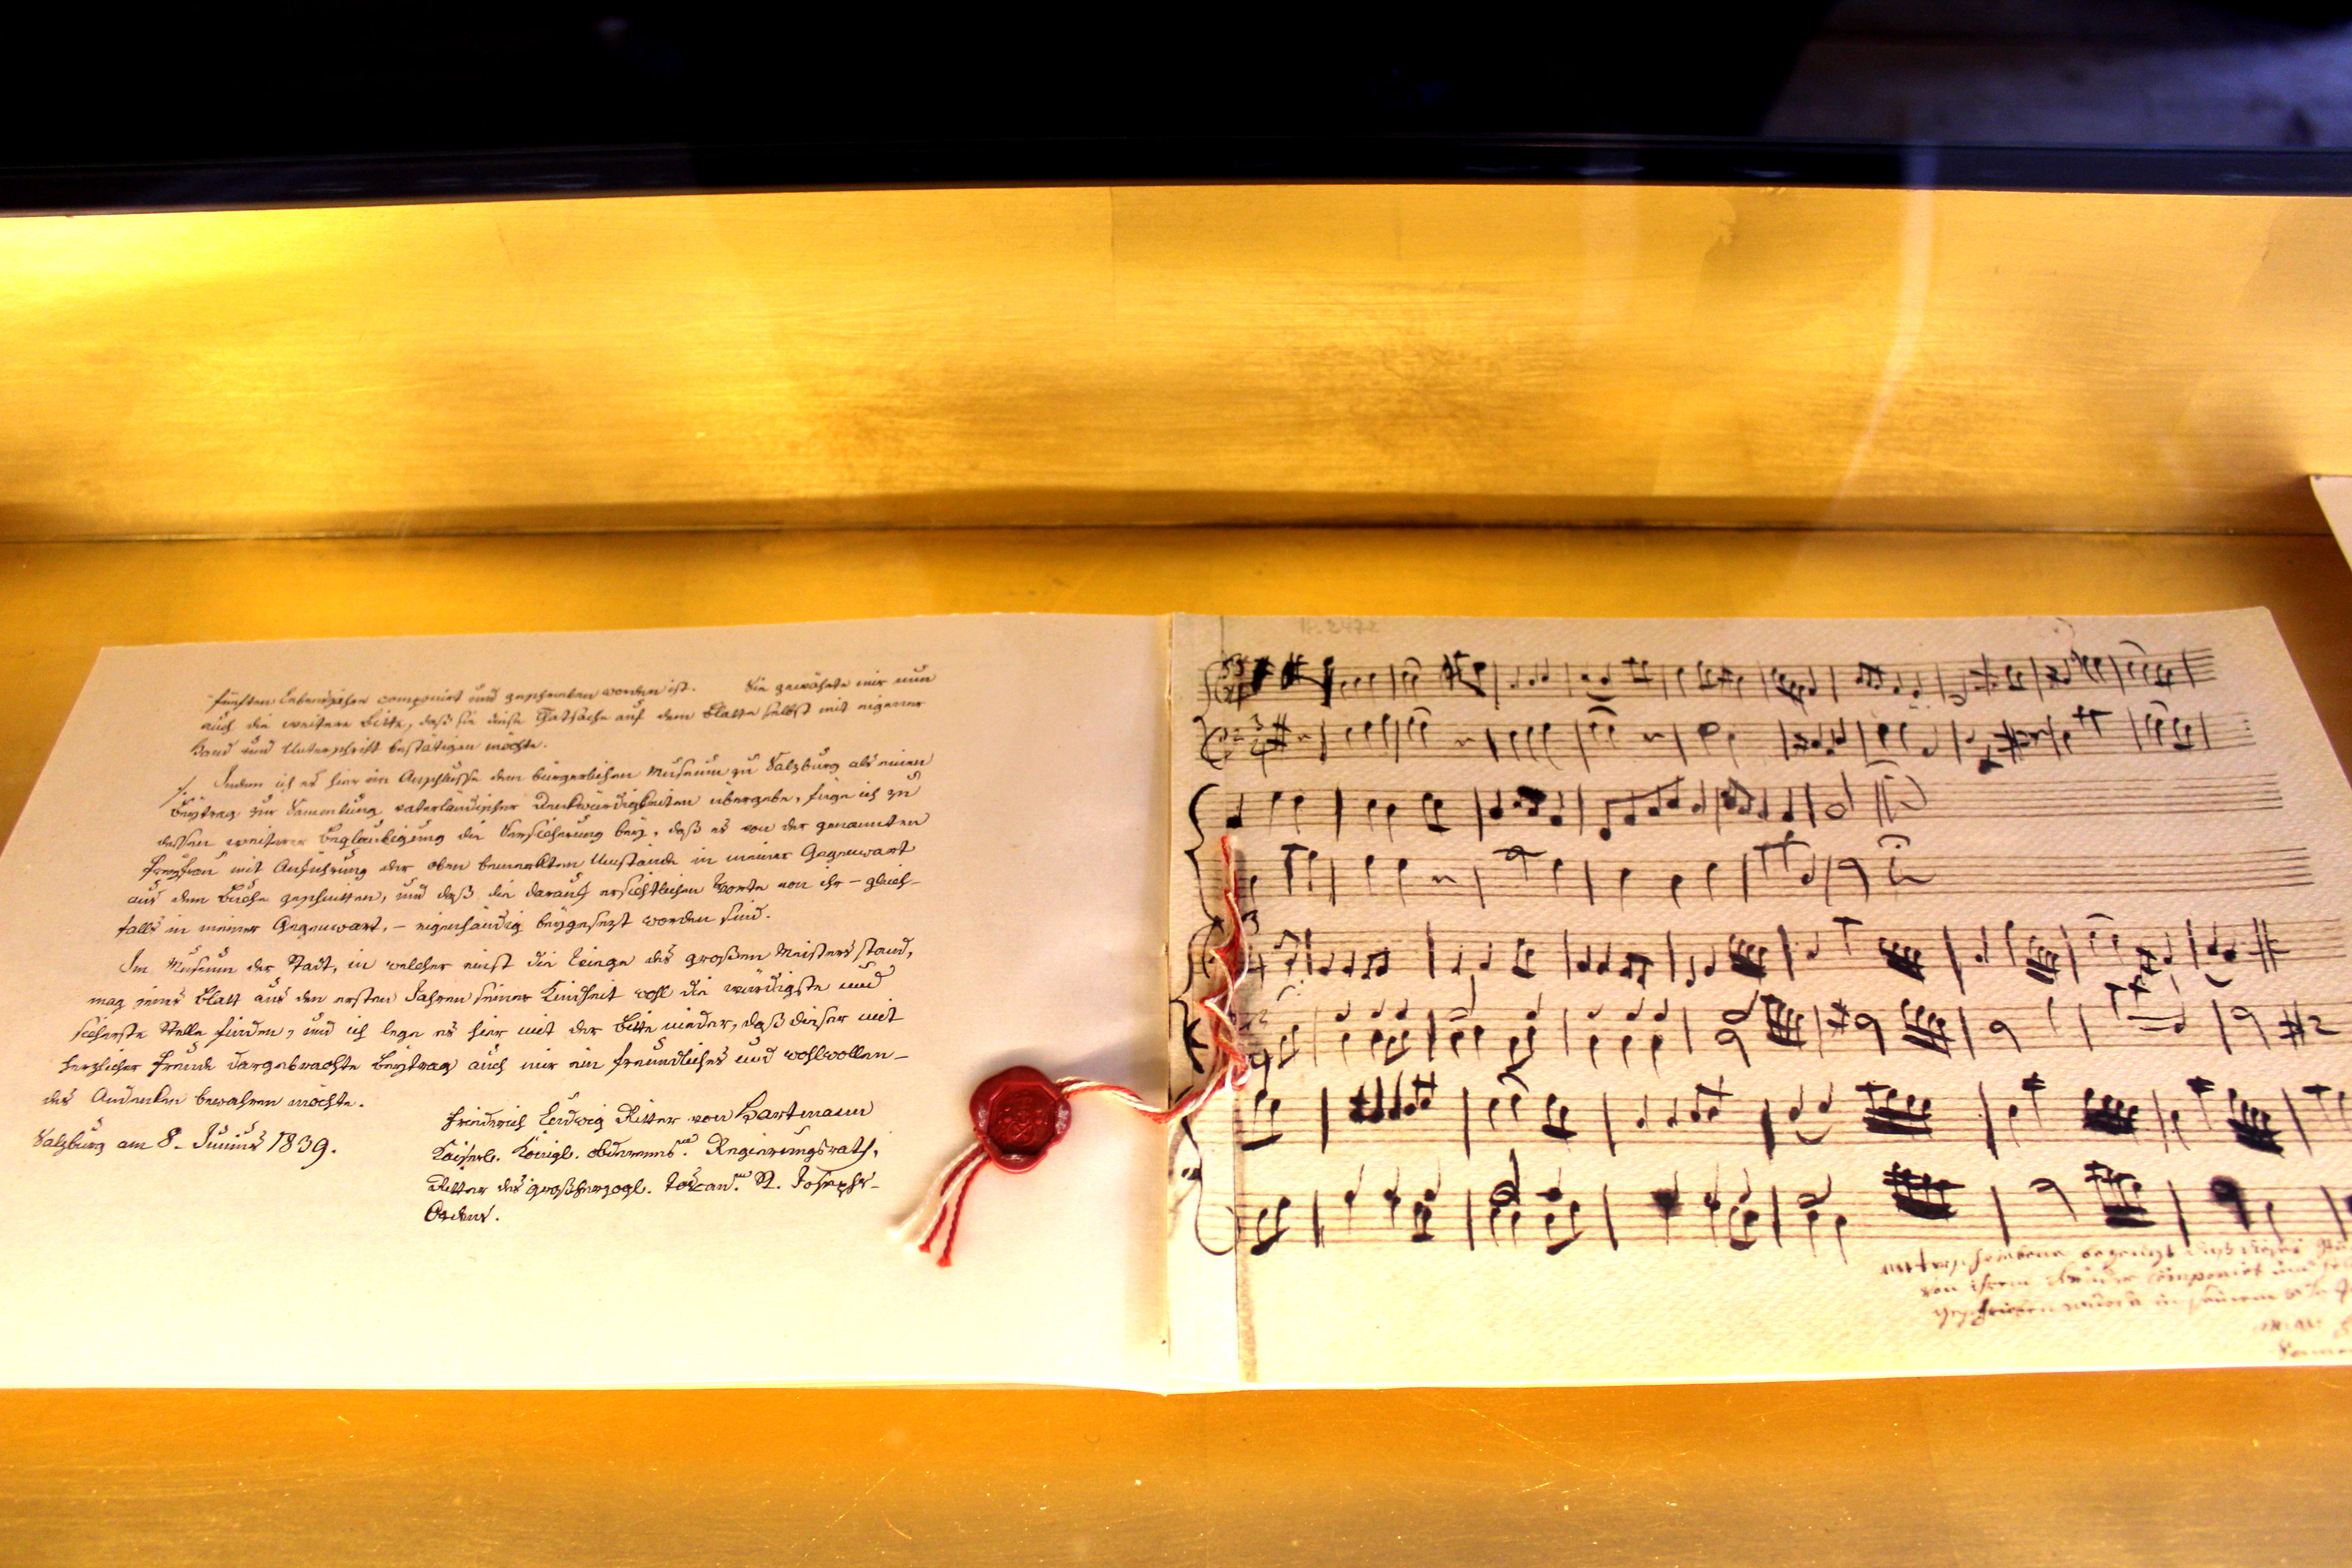 fünften Lebensjahre componirt und geschrieben worden ist. Sie gewährte mir nun
auch die weitere Bitte, daß sie diese Thatsache auf dem Blatte selbst mit eigener
Hand und Unterschrift bestätigen möchte.
Indem ich es hier im Anschlusse dem bürgerlichen Museum zu Salzburg als einen
Beytrag zur Sammlung vaterländischer Denkwürdigkeiten übergebe, füge ich zu
dessen weiterer Beglaubigung die Versicherung bey, daß es von der genannten
Freyfrau mit Anführung der oben bemerkten Umstände in meiner Gegenwart
aus dem Buche geschnitten, und daß die darauf ersichtlichen Worte von ihr – gleich-
falls in meiner Gegenwart, – eigenhändig beygesezt worden sind.
Im Museum der Stadt, in welcher einst die Wiege des großen Meisters stand,
mag jenes Blatt aus den ersten Jahren seiner Kindheit wohl die würdigste und
sicherste Stelle finden, und ich lege es hier mit der Bitte nieder, daß dieser mit
herzlicher Freude dargebrachte Beytrag auch mir ein freundliches und wohlwollen-
des Andenken bewahren möchte.
Salzburg am 8. Junius 1839.
Friederich Ludwig Ritter von Hartmann
Kaiserl. Königl. Regierungsrath,
Ritter des großherzogl. toscan. St. Josephs-
Ordens.
von ihrem Bruder componirt und
geschrieben worden in seinem